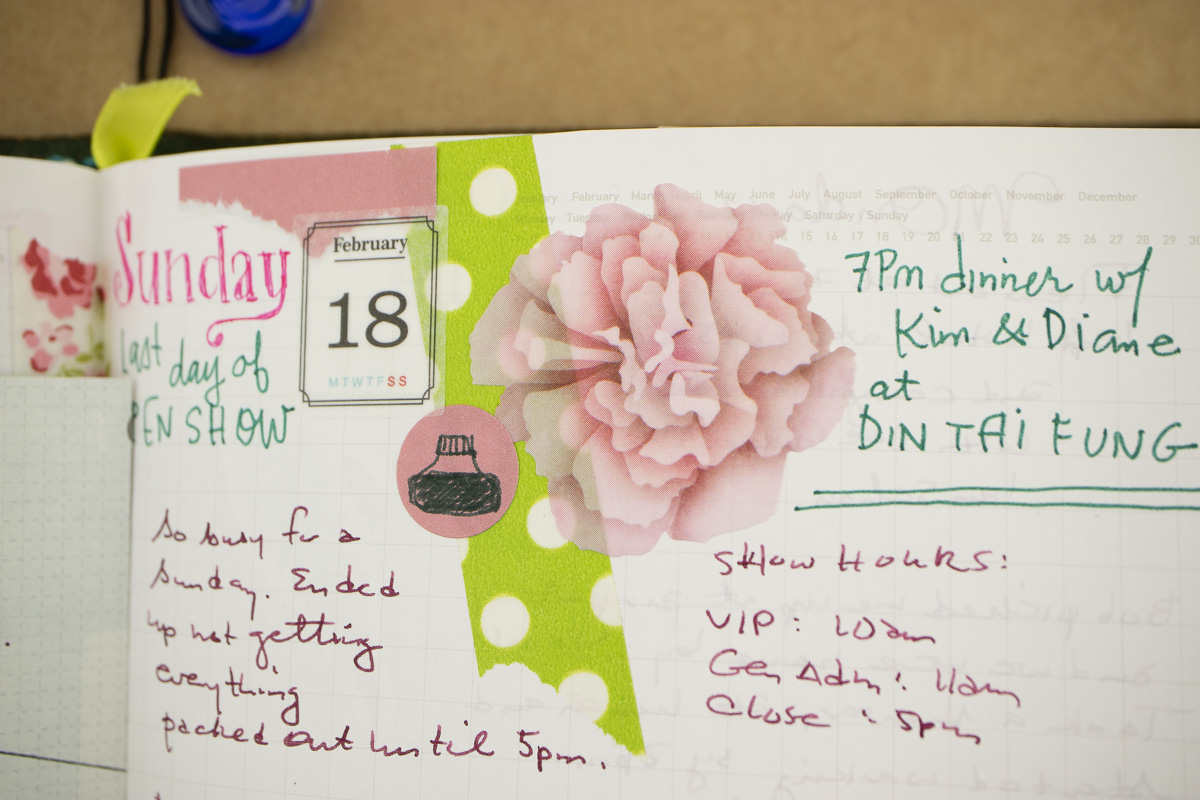 February March April May June July August September October November December
Saturday Sunday
15 16 17 18 19 20 21 22 23 24 25 26 27 28 29 30
Sunday
last day of
PEN SHOW
February
18
MTWTFSS
7Pm dinner w/
Kim & Diane
at
DIN TAI FUNG
So busy for a
Sunday. Ended
up not getting
everything
packed out until 5pm.
SHOW HOURS:
VIP: 10am
Gen Adm: 11am
Close: 5pm